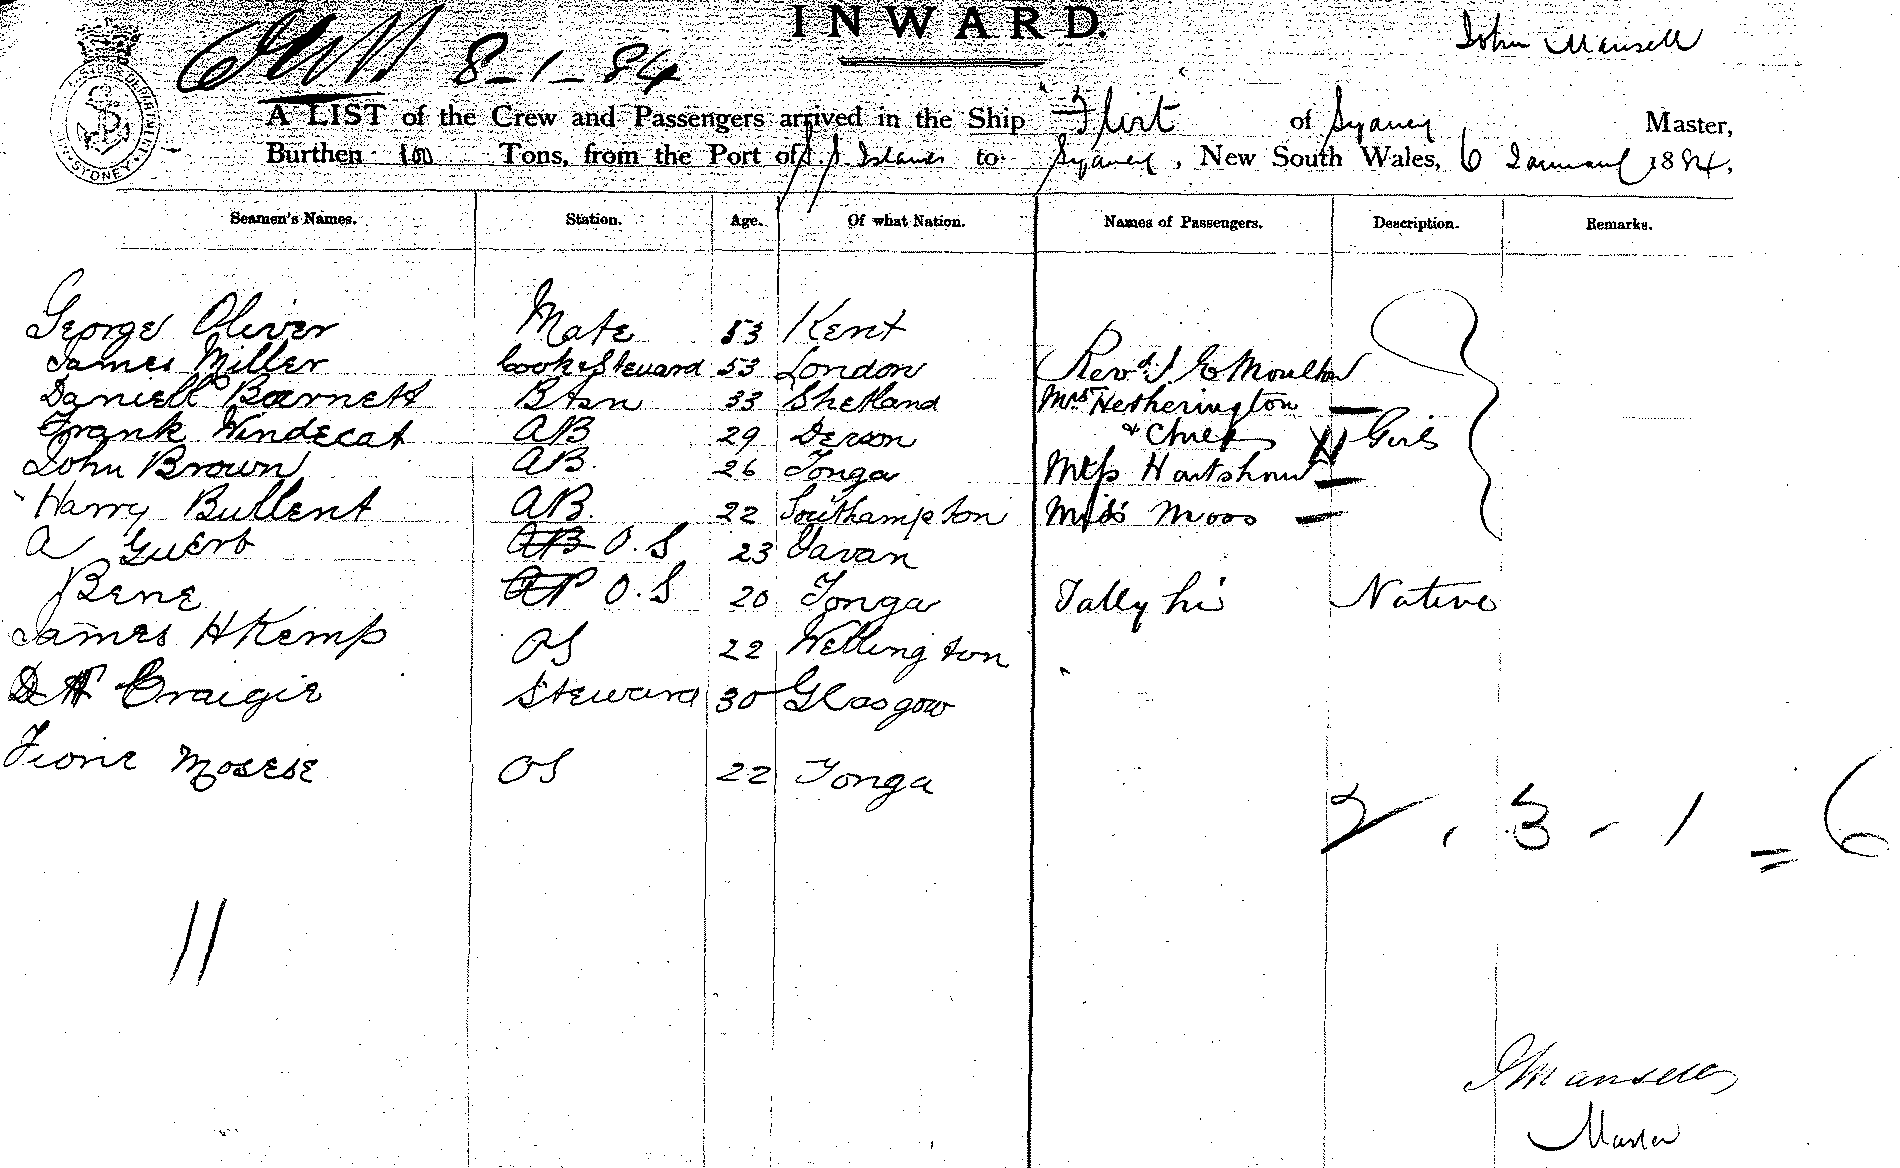 INWARD.
John Mansell
8-1-84
A LIST of the Crew and Passengers arrived in the Ship "Flirt" of Sydney Master,
Burthen 100 Tons, from the Port of S.S Islands to Sydney, New South Wales, 6 January 1884.
Seamen's Names. Station. Age. Of what Nation. Names of Passengers. Description. Remarks.
George Oliver Mate 53 Kent
James Miller Cook & Steward 53 London Revd. J. E Moulton
Daniell Barnett Btsn 33 Shetland Mrs Hetherington
Frank Windecat AB 29 & Child Girls
John Brown AB. 26 Tonga Hartshorn
Harry Bullent AB. 22 Southampton Miss Moss
A Guerb AB O.S 23 Javan
Bene AB O.S 20 Tonga Tally hi Native
James H Kemp OS 22 Wellington
D H Craigie Steward 30 Glasgow
Fione Mosese OS 22 Tonga
2 , 3 - 1 = 6
11
J Mansell
Master
SYDNEY